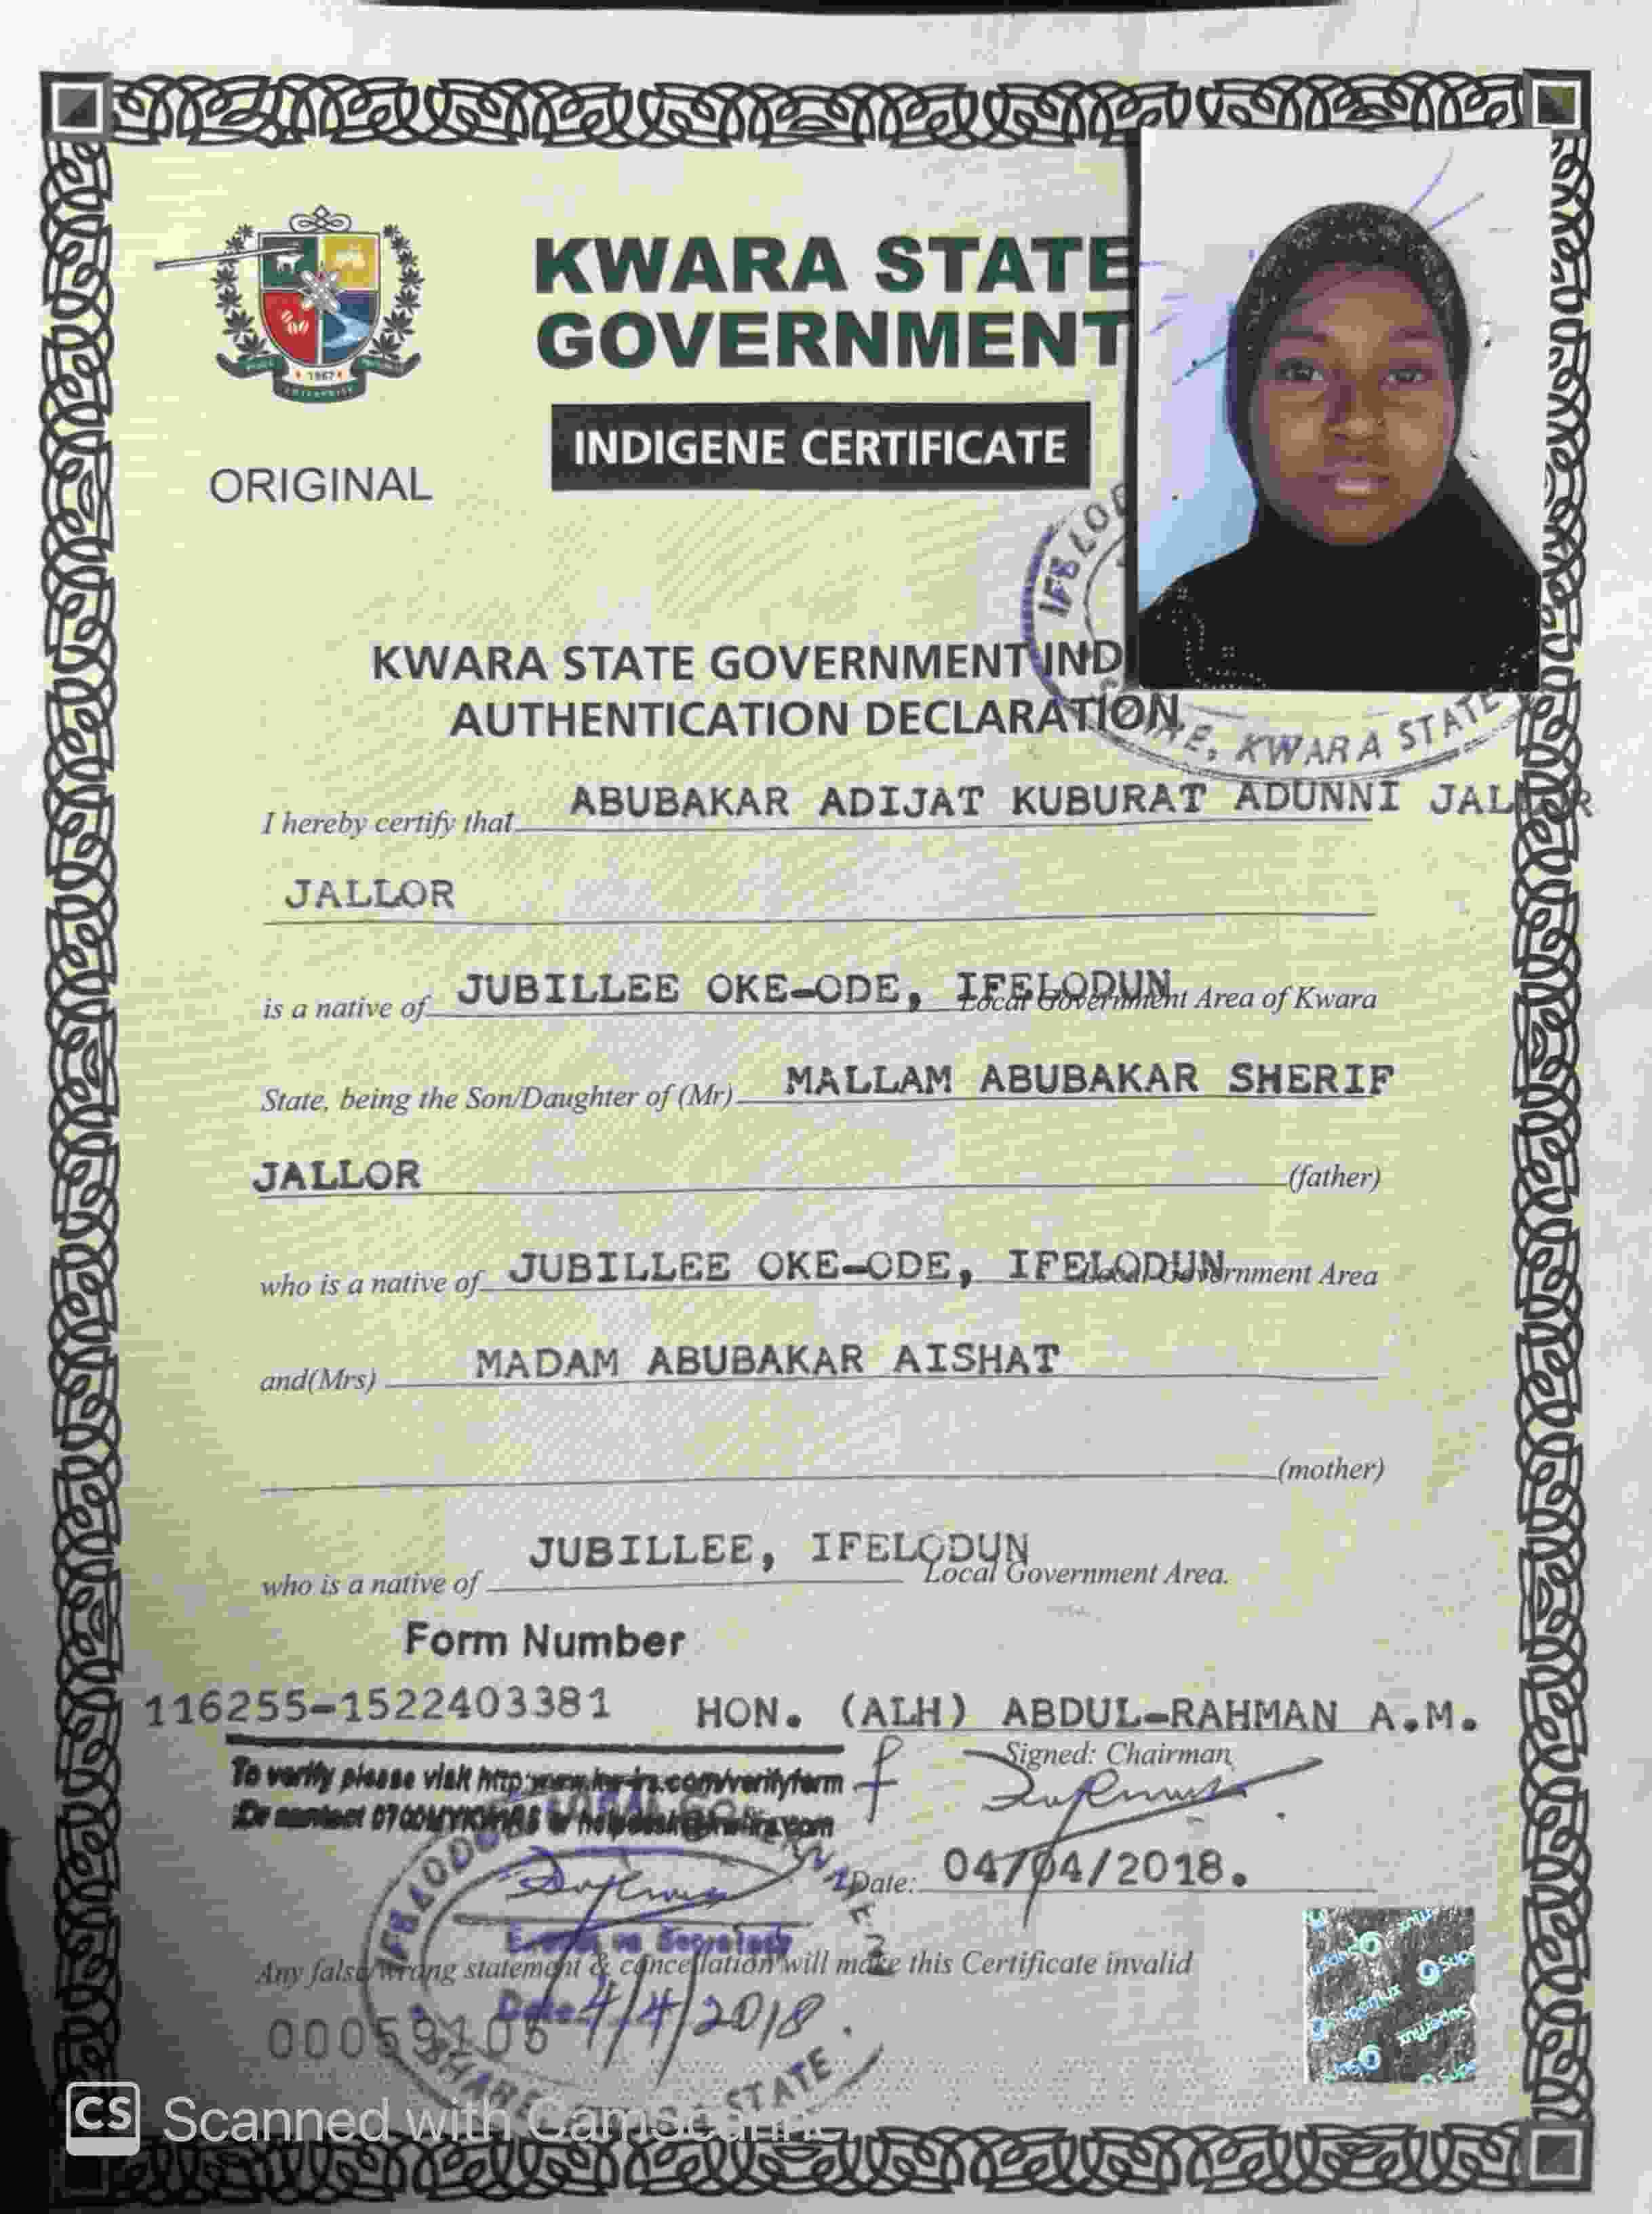 KWARA STATE
GOVERNMENT
INDIGENE CERTIFICATE
ORIGINAL
KWARA STATE GOVERNMENT IND
AUTHENTICATION DECLARATION
KWARA STATE
I hereby certify that ABUBAKAR ADIJAT KUBURAT ADUNNI
JALLOR
is a native of JUBILLEE OKE-ODE, IFELODUN Local Government Area of Kwara
State, being the Son/Daughter of (Mr) MALLAM ABUBAKAR SHERIF
JALLOR (father)
who is a native of JUBILLEE OKE-ODE, IFELODUN Local Government Area
and(Mrs) MADAM ABUBAKAR AISHAT
(mother)
who is a native of JUBILLEE, IFELODUN Local Government Area.
Form Number
116255-1522403381 HON. (ALH) ABDUL-RAHMAN A.M.
Signed: Chairman
To verify please visit
Date: 04/04/2018.
Any false/wrong statement & cancellation will make this Certificate invalid
Date 4/4/2018
STATE
CS Scanned with CamScanner